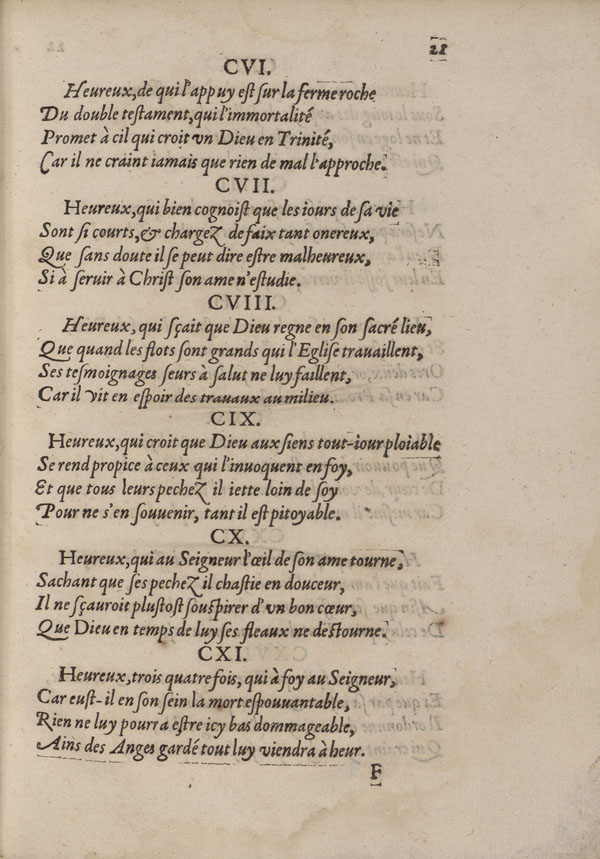 21
CVI.
Heureux, de qui l'appuy est sur la ferme roche
Du double testament, qui l'immortalité
Promet à cil qui croit vn Dieu en Trinité,
Car il ne craint iamais que rien de mal l'approche.
CVII.
Heureux, qui bien cognoist que les iours de sa vie
Sont si courts, & chargez de faix tant onereux,
Que sans doute il se peut dire estre malheureux,
Si à seruir à Christ son ame n'estudie.
CVIII.
Heureux, qui sçait que Dieu regne en son sacré lieu,
Que quand les flots sont grands qui l'Eglise trauaillent,
Ses tesmoignages seurs à salut ne luy faillent,
Car il vit en espoir des trauaux au milieu.
CIX.
Heureux, qui croit que Dieu aux siens tout-iour ploiable
Se rend propice à ceux qui l'inuoquent en foy,
Et que tous leurs pechez il iette loin de soy
Pour ne s'en souuenir, tant il est pitoyable.
CX.
Heureux, qui au Seigneur l'œil de son ame tourne,
Sachant que ses pechez il chastie en douceur,
Il ne sçauroit plustost souspirer d'vn bon cœur,
Que Dieu en temps de luy ses fleaux ne destourne.
CXI.
Heureux, trois quatre fois, qui à foy au Seigneur,
Car eust-il en son sein la mort espouuantable,
Rien ne luy pourra estre icy bas dommageable,
Ains des Anges gardé tout luy viendra à heur.
F